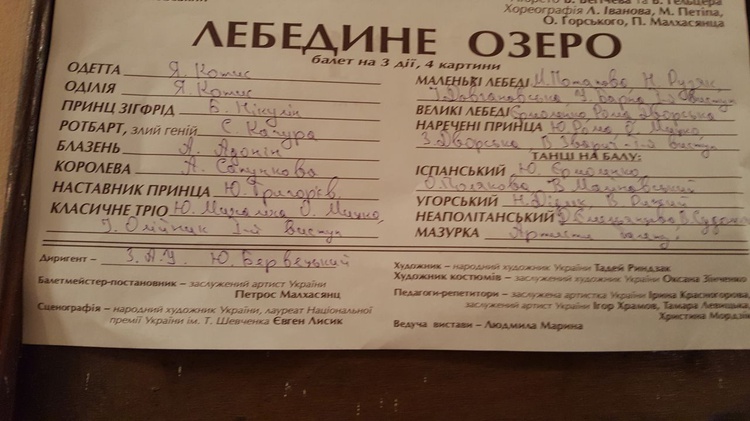 Хореографія Л. Іванова, М. Петіпа,
О. Горського, П. Малхасянца
ЛЕБЕДИНЕ ОЗЕРО
балет на 3 дії, 4 картини
ОДЕТТА Я. Котис
ОДІЛІЯ Я. Котис
ПРИНЦ ЗІГФРІД Є. Нікулін
РОТБАРТ, злий геній С. Качура
БЛАЗЕНЬ А.
КОРОЛЕВА А.
НАСТАВНИК ПРИНЦА Ю. Григорєв
КЛАСИЧНЕ ТРІО Ю. Михаліха О. Мицко,
І. Олійник І-й виступ
МАЛЕНЬКІ ЛЕБЕДІ М. Потапова Н.
ВЕЛИКІ ЛЕБЕДІ Єрмоленко, Рома, Дворська
НАРЕЧЕНІ ПРИНЦА Ю. Рома О. Мицко,
З. Дворська В. Зварич - І-й виступ
ТАНЦІ НА БАЛУ:
ІСПАНСЬКИЙ Ю. Єрмоленко
О. Полякова, В.
УГОРСЬКИЙ Н. В. Рижий
НЕАПОЛІТАНСЬКИЙ
МАЗУРКА Артисти балету
Диригент – З.А.У. Ю. Бервецький
Балетмейстер-постановник – заслужений артист України
Петрос Малхасянц
Сценографія – народний художник України, лауреат Національної
премії України ім. Т. Шевченка Євген Лисик
Художник – народний художник України Тадей Риндзак
Художник костюмів – заслужений художник України Оксана Зінченко
Педагоги-репетитори – заслужена артистка України Ірина Красногорова,
заслужений артист України Ігор Храмов, Тамара Левицька,
Христина
Ведуча вистави – Людмила Марина